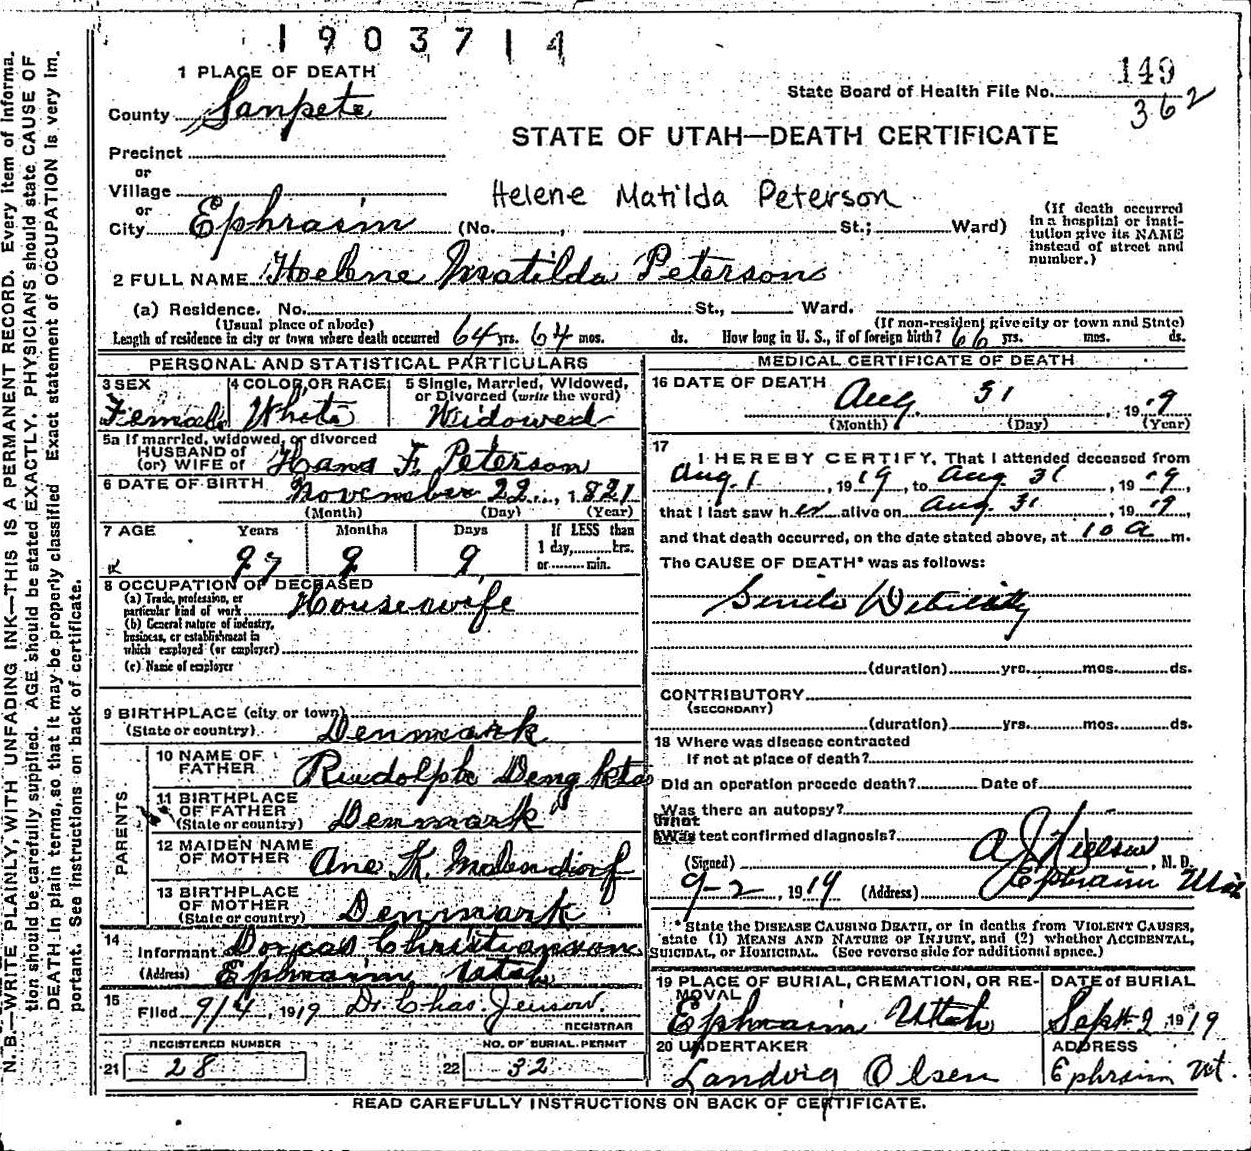 1903714
1 PLACE OF DEATH
149
State Board of Health File No.
362
County Sanpete
STATE OF UTAH—DEATH CERTIFICATE
Precinct
or
Village
Helene Matilda Peterson
or
City Ephraim (No. , St.; Ward)
(If death occurred in a hospital or institution give its NAME instead of street and number.)
2 FULL NAME Hoelene Matilda Peterson
(a) Residence. No. St., Ward.
(Usual place of abode) (If non-resident give city or town and State)
Length of residence in city or town where death occurred 64 yrs. 64 mos. ds. How long in U. S., if of foreign birth? 66 yrs. mos. ds.
PERSONAL AND STATISTICAL PARTICULARS
3 SEX Female
4 COLOR OR RACE White
5 Single, Married, Widowed, or Divorced (write the word) Widowed
5a If married, widowed, or divorced
HUSBAND of
(or) WIFE of Hans F. Peterson
6 DATE OF BIRTH November 22, 1821
(Month) (Day) (Year)
7 AGE Years Months Days If LESS than
97 9 9 1 day, hrs.
or min.
8 OCCUPATION OF DECEASED
(a) Trade, profession, or particular kind of work Housewife
(b) General nature of industry, business, or establishment in which employed (or employer)
(c) Name of employer
9 BIRTHPLACE (city or town)
(State or country) Denmark
PARENTS
10 NAME OF FATHER Rudolphe
11 BIRTHPLACE OF FATHER (State or country) Denmark
12 MAIDEN NAME OF MOTHER Ane K.
13 BIRTHPLACE OF MOTHER (State or country) Denmark
14 Informant Dorcas Christianson
(Address) Ephraim Utah
15 Filed 9/4, 1919 Dr. Chas. Jenson.
REGISTRAR
REGISTERED NUMBER NO. OF BURIAL PERMIT
21 28 22 32
MEDICAL CERTIFICATE OF DEATH
16 DATE OF DEATH Aug. 31, 1919
(Month) (Day) (Year)
17 I HEREBY CERTIFY, That I attended deceased from
Aug. 1, 1919, to Aug 31, 1919,
that I last saw her alive on Aug. 31, 1919,
and that death occurred, on the date stated above, at 10 a m.
The CAUSE OF DEATH* was as follows:
Senile Debility
(duration) yrs. mos. ds.
CONTRIBUTORY
(SECONDARY)
(duration) yrs. mos. ds.
18 Where was disease contracted
If not at place of death?
Did an operation precede death? Date of
Was there an autopsy?
What test confirmed diagnosis?
(Signed) A J Nielson, M. D.
9-2, 1919 (Address) Ephraim Utah
* State the DISEASE CAUSING DEATH, or in deaths from VIOLENT CAUSES,
state (1) MEANS AND NATURE OF INJURY, and (2) whether ACCIDENTAL,
SUICIDAL, or HOMICIDAL. (See reverse side for additional space.)
19 PLACE OF BURIAL, CREMATION, OR REMOVAL Ephraim Utah
DATE of BURIAL Sept 2 1919
20 UNDERTAKER Landvig Olsen
ADDRESS Ephraim Ut.
READ CAREFULLY INSTRUCTIONS ON BACK OF CERTIFICATE.
N. B.—WRITE PLAINLY, WITH UNFADING INK—THIS IS A PERMANENT RECORD. Every item of informa.
tion should be carefully supplied. AGE should be stated EXACTLY. PHYSICIANS should state CAUSE OF
DEATH in plain terms, so that it may be properly classified. Exact statement of OCCUPATION is very im.
portant. See instructions on back of certificate.